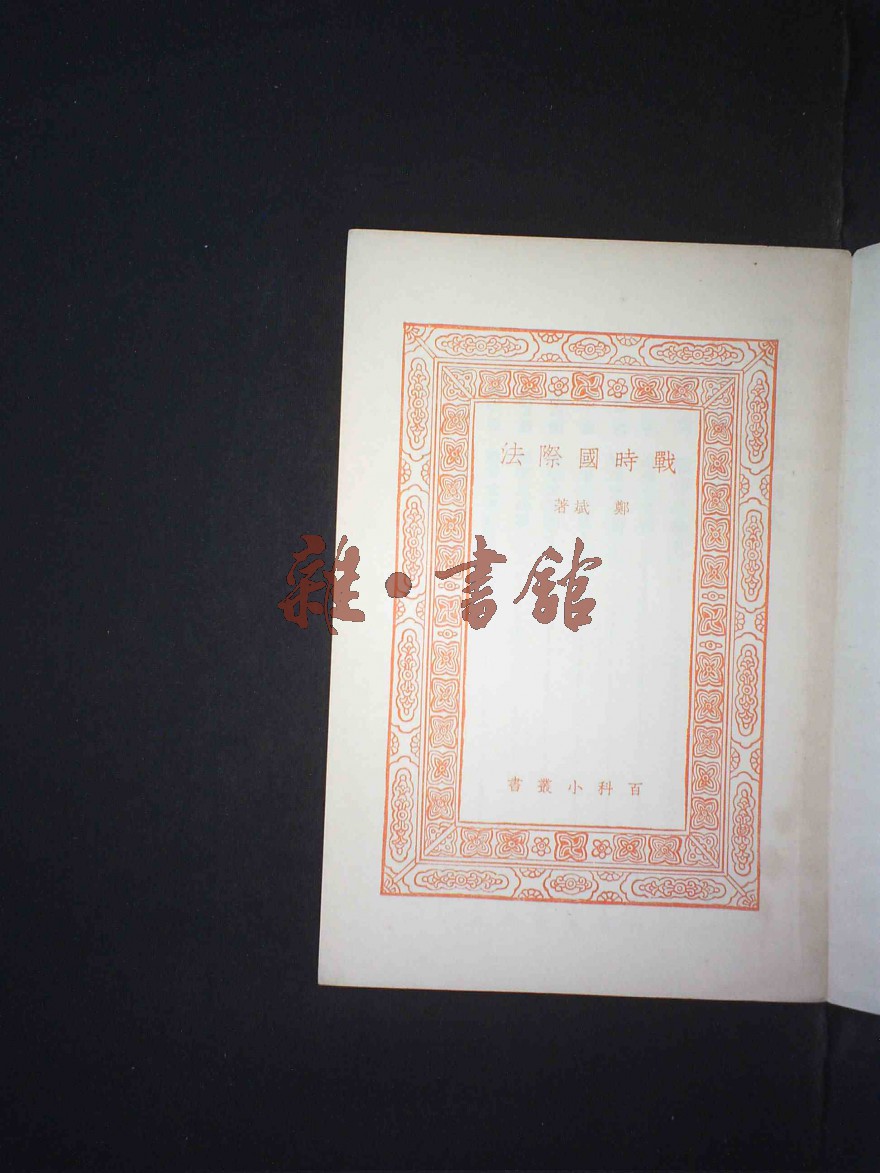 戰時國際法
鄭斌著
雜·書館
百科小叢書